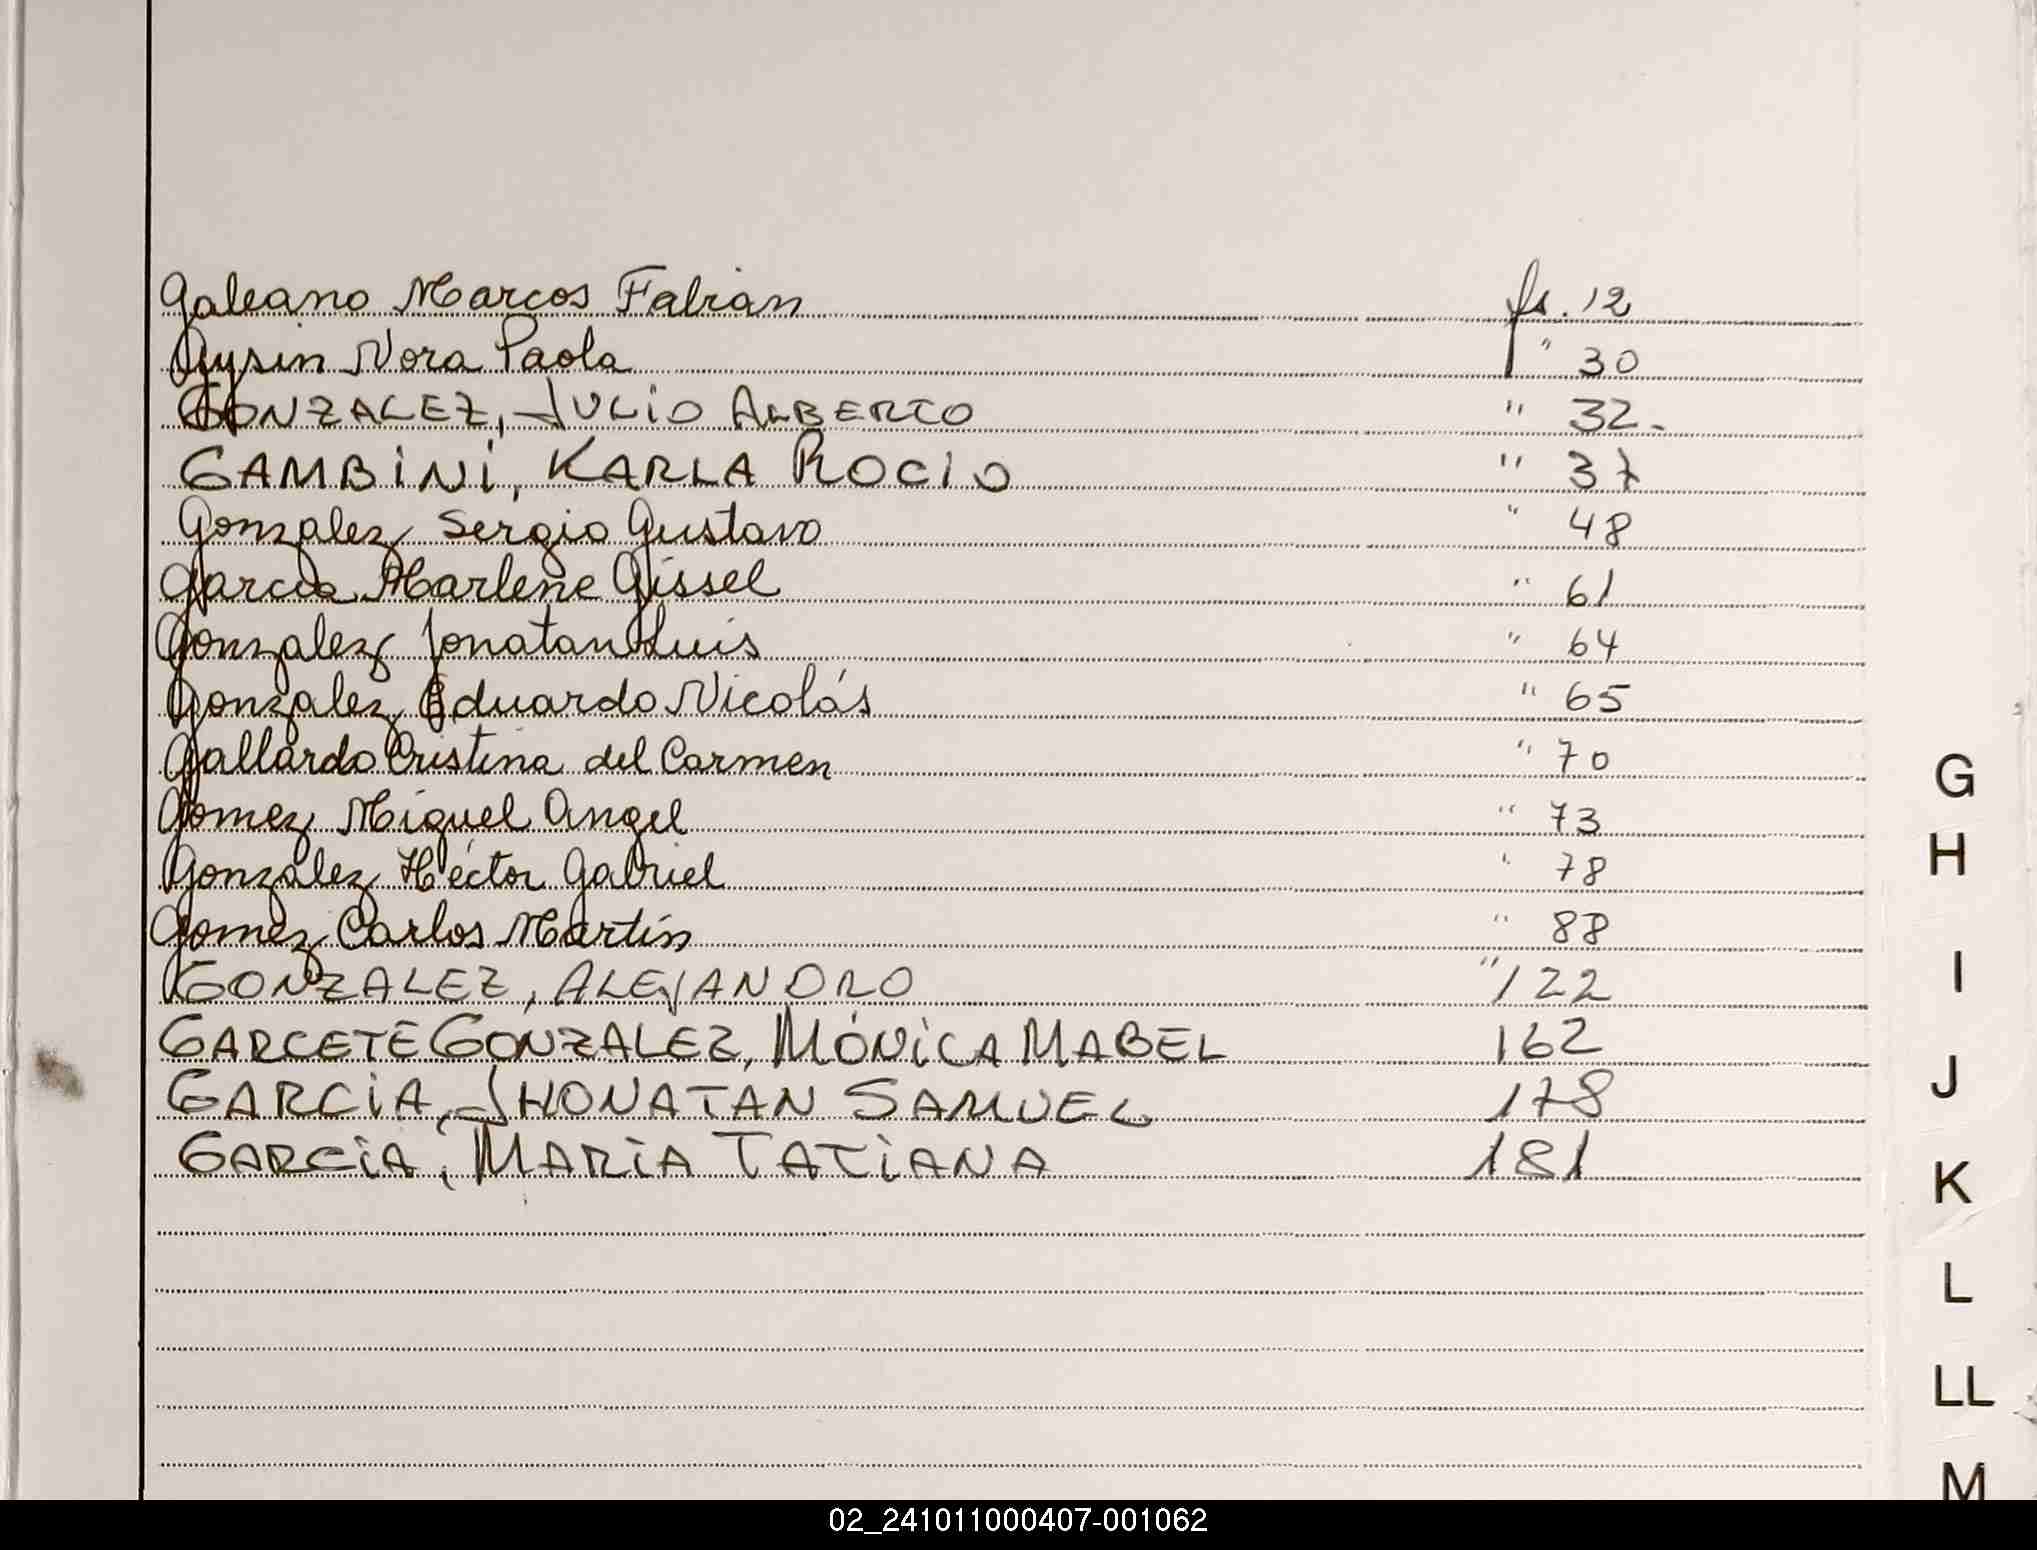 Galeano Marcos Fabian fs. 12
Gysin Nora Paola " 30
GONZALEZ, JULIO ALBERTO " 32.
GAMBINI, KARLA ROCIO " 37
Gonzalez Sergio Gustavo " 48
Garcia Marlene Gissel " 61
Gonzalez Jonatan Luis " 64
Gonzalez Eduardo Nicolás " 65
Gallardo Cristina del Carmen " 70
Gomez Miguel Angel " 73
Gonzalez Héctor Gabriel " 78
Gomez Carlos Martín " 88
GONZALEZ, ALEJANDRO " 122
GARCETE GONZALEZ, MÓNICA MABEL 162
GARCIA, JHONATAN SAMUEL 178
GARCIA, MARIA TATIANA 181
G
H
I
J
K
L
LL
M
02_241011000407-001062